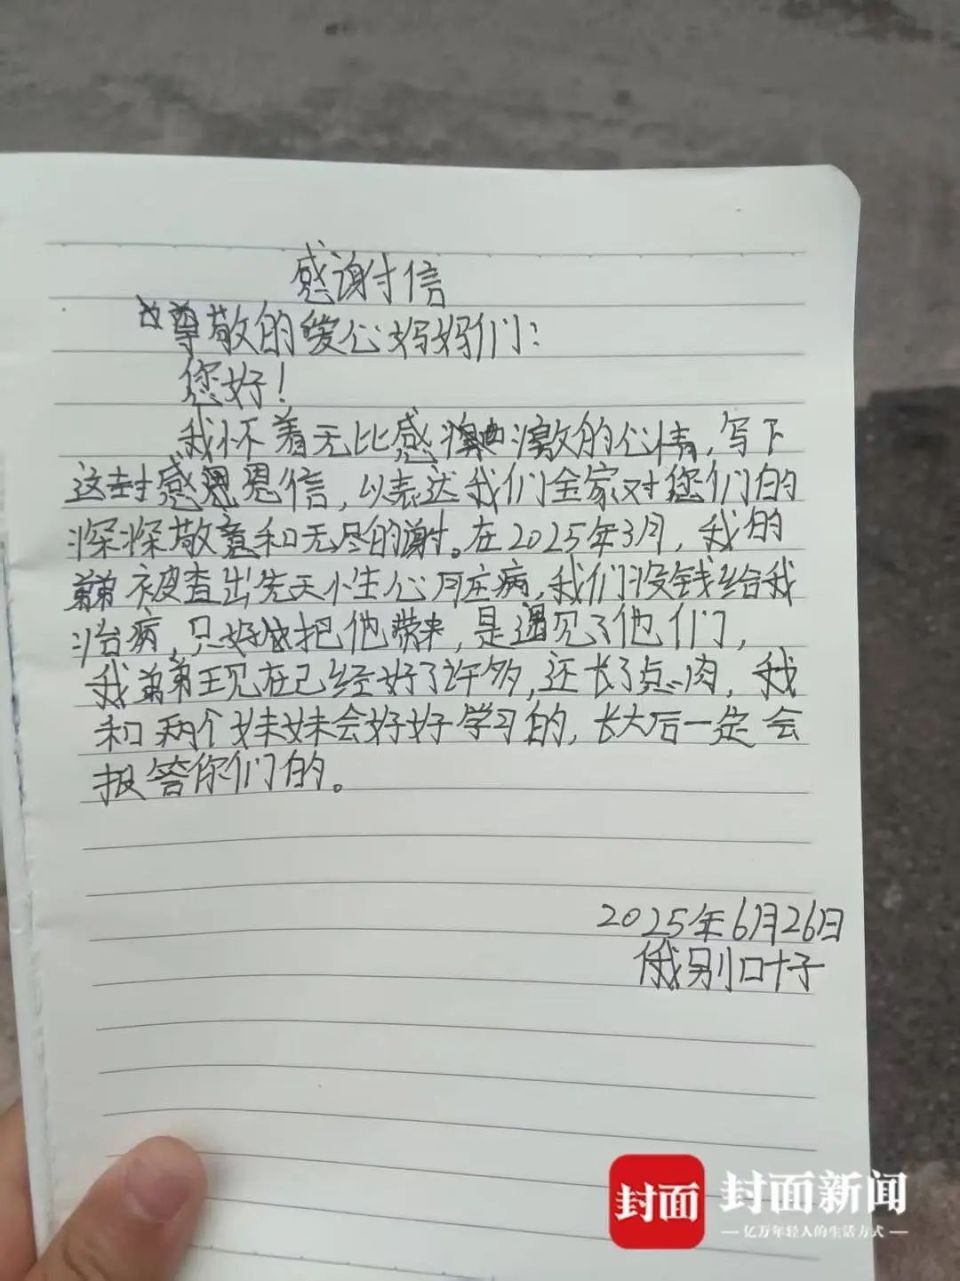 感谢信
尊敬的爱心妈妈们：
您好！
我怀着无比感激的心情，写下
这封感恩信，以表达我们全家对您们的
深深敬意和无尽的谢。在2025年3月，我的
弟弟被查出先天性心脏病，我们没钱给我
治病，只好把他带来，是遇见了他们，
我弟弟现在已经好了许多，还长了点肉，我
和两个妹妹会好好学习的，长大后一定会
报答你们的。
2025年6月26日
俄别叶子
封面
封面新闻
亿万年轻人的生活方式